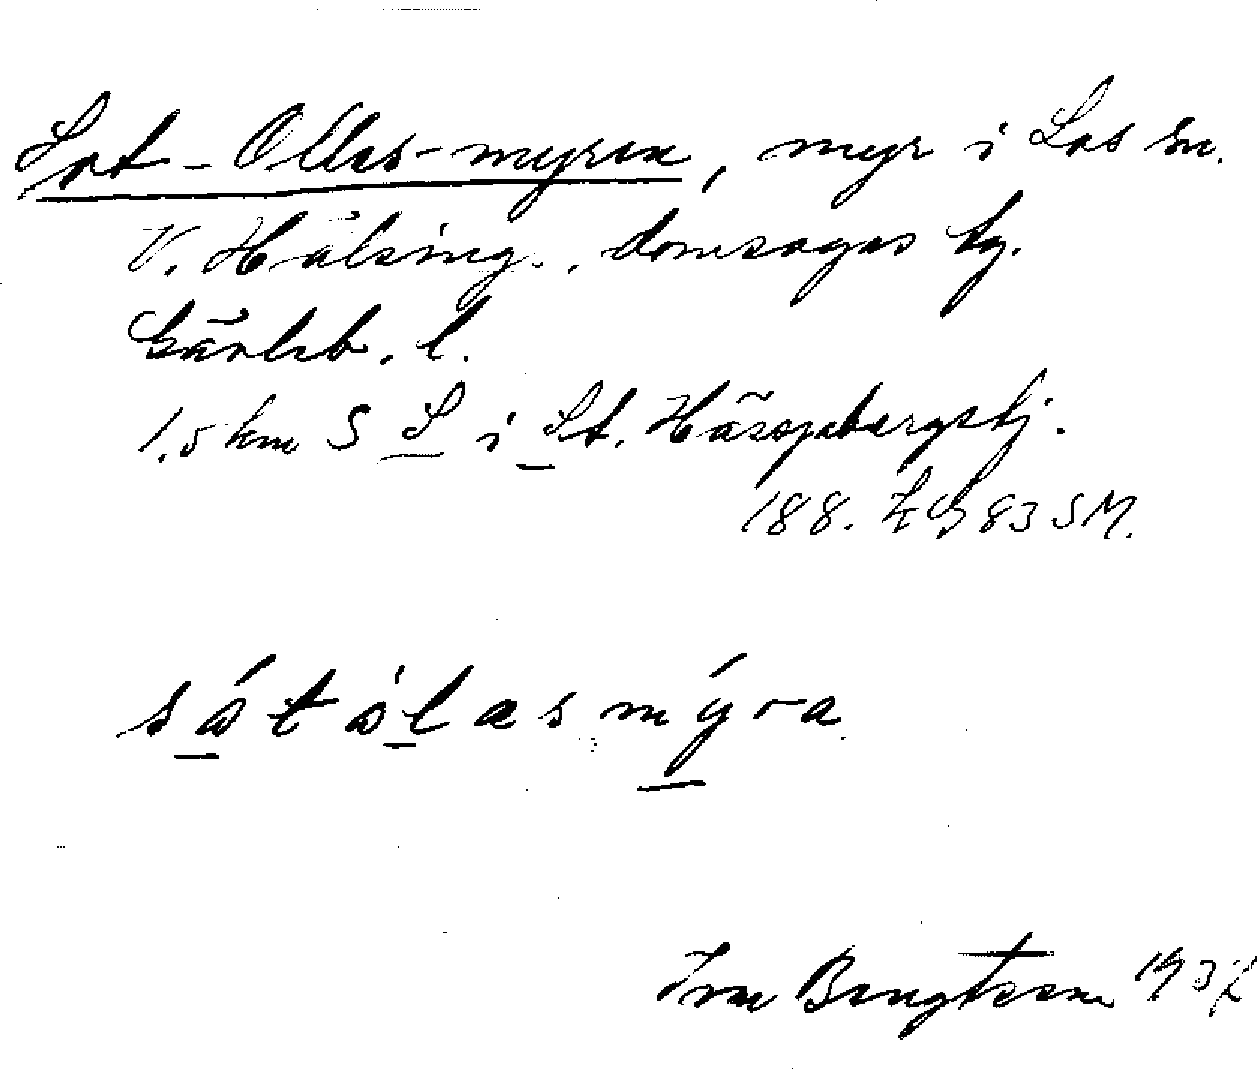 Sot-Olles-myren, myr i Los sn.
V. Hälsing. domsagas tg.
Gävleb. l.
1,5 km S S i St. Hässjabergstj.
188. 83 SM.
såtålasmýra
Bengtsson 1937